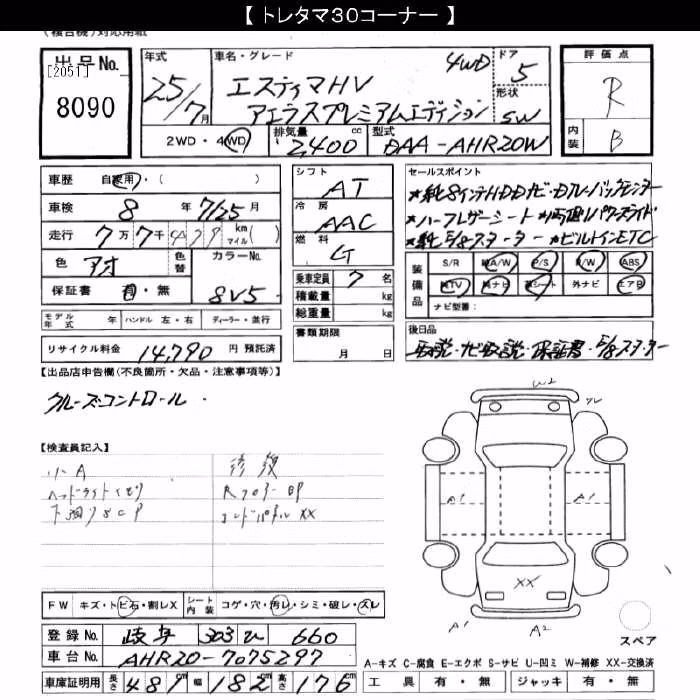 【 トレタマ30コーナー 】
(複合機)対応用紙
出品No.
[2051]
8090
年式 25/7月
車名・グレード エスティマHV 4WD
アエラスプレミアムエディション
ドア 5
形状 SW
評価点 R
内装 B
2WD・4WD 排気量 2,400 cc 型式 DAA-AHR20W
車歴 自家用・( )
車検 8年 7/25月
走行 7万7千477 km マイル( )
色 アオ 色替 カラーNo. 8V5
保証書 有・無
モデル年式 年 ハンドル 左・右 ディーラー・並行
リサイクル料金 14,790 円 預託済
シフト AT
冷房 AAC
燃料 G
乗車定員 7 名
積載量 kg
総重量 kg
書類期限 月 日
セールスポイント
★純8インチHDDナビ・BTV・バックモニター
★ハーフレザーシート ★両側パワースライド
★純E/gスターター ★ビルトインETC
装備品 S/R 純A/W P/S P/W ABS
純TV 純ナビ 革シート 外ナビ エアB
ナビ型番:
後日品
取説・ナビ取説・保証書・E/gスターター
【出品店申告欄(不良箇所・欠品・注意事項等)】
クルーズコントロール
【検査員記入】
小A 修復
ヘッドライトくもり Rフロアー BP
下廻りSCP エンドパネル XX
W2
A1 A1
XX
A1 A2
スペア
FW キズ・トビ石・割レX シート内装 コゲ・穴・汚レ・シミ・破レ・スレ
登録No. 岐阜 303 660
車台No. AHR20-7075297
車庫証明用 長さ 481cm 幅 182cm 高さ 176cm
A-キズ C-腐食 E-エクボ S-サビ U-凹ミ W-補修 XX-交換済
工具 有・無 ジャッキ 有・無